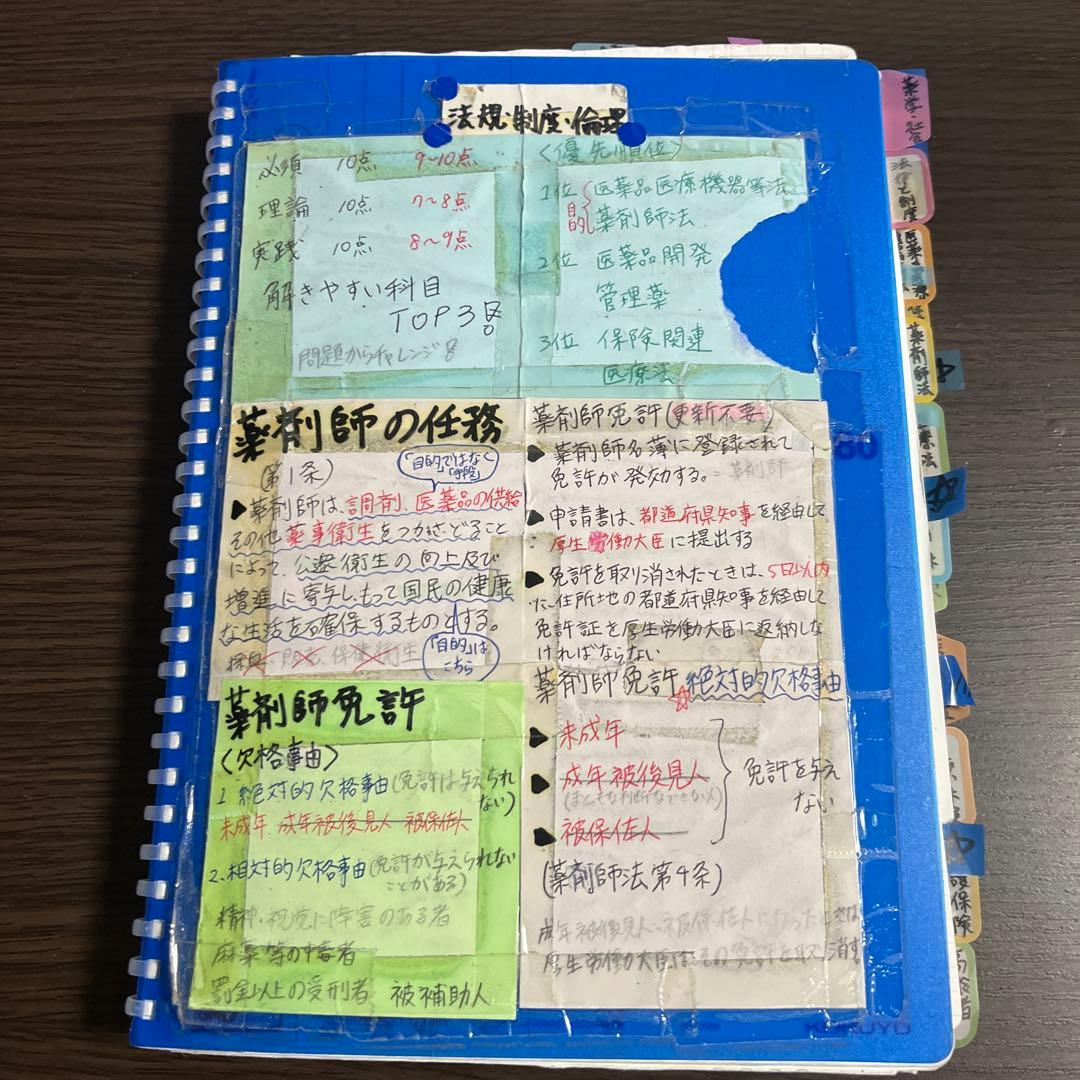 法規・制度・倫理
必須 10点 9〜10点
理論 10点 7〜8点
実践 10点 8〜9点
解きやすい科目
TOP3
問題からチャレンジ
〈優先順位〉
1位 医薬品医療機器等法
目的
薬剤師法
2位 医薬品開発
管理薬
3位 保険関連
医療法
薬剤師の任務
(第1条)
「目的」ではなく
「手段」
▶薬剤師は、調剤、医薬品の供給
その他 薬事衛生をつかさどること
によって、公衆衛生の向上及び
増進に寄与しもって国民の健康
な生活を確保するものとする。
保健衛生
「目的」は
こちら
薬剤師免許(更新不要)
▶薬剤師名簿に登録されて
免許が発効する。
薬剤師
▶申請書は、都道府県知事を経由して
厚生労働大臣に提出する
▶免許を取り消されたときは、5日以内
に、住所地の都道府県知事を経由して
免許証を厚生労働大臣に返納しな
ければならない
薬剤師免許 ☆絶対的欠格事由
▶未成年
▶成年被後見人
▶被保佐人
免許を与え
ない
(薬剤師法第4条)
成年被後見人・被保佐人になったときは
厚生労働大臣は、その免許を取り消す
薬剤師免許
〈欠格事由〉
1 絶対的欠格事由(免許は与えられ
ない)
未成年 成年被後見人 被保佐人
2.相対的欠格事由(免許が与えられない
ことがある)
精神・視覚に障害のある者
麻薬等の中毒者
罰金以上の受刑者 被補助人
KOKUYO
薬剤師法